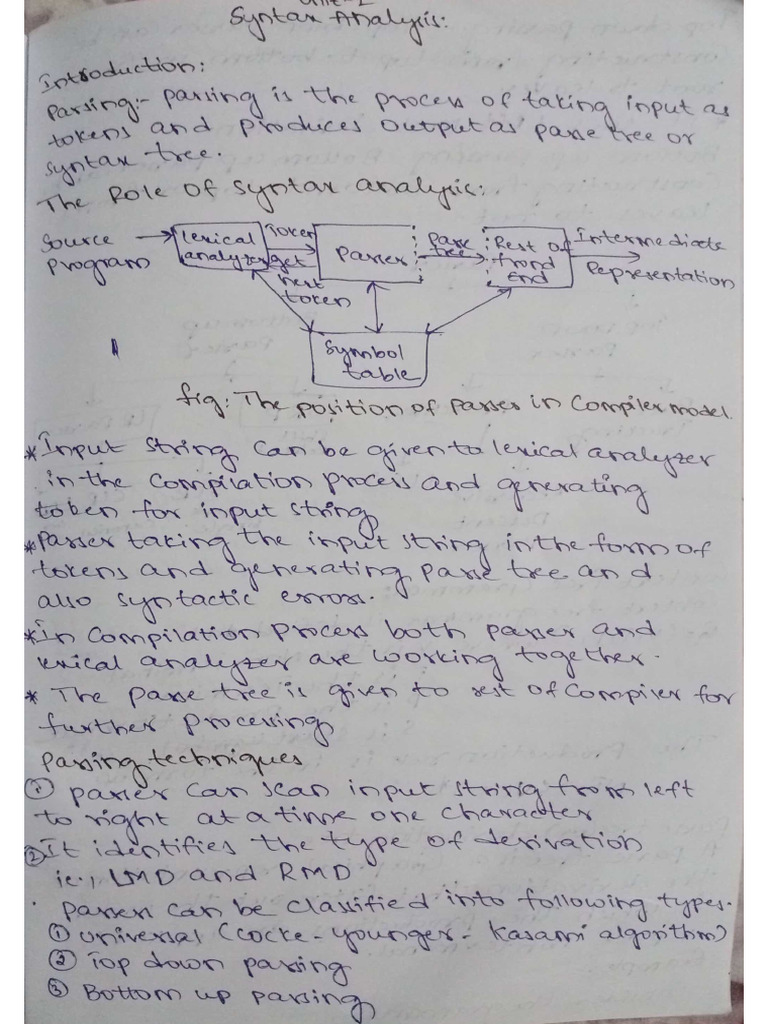 Unit-1
Syntax Analysis:
Introduction:
Parsing:- parsing is the process of taking input as
tokens and produces output as parse tree or
syntax tree.
The Role of syntax analysis:
Source program
lexical analyzer
Token
get next token
Parser
parse tree
Rest of frond end
Intermediate Representation
Symbol table
fig: The position of parser in compiler model.
* Input string can be given to lexical analyzer
in the compilation process and generating
token for input string
* Parser taking the input string in the form of
tokens and generating parse tree and
also syntactic errors.
* In compilation process both parser and
lexical analyzer are working together.
* The parse tree is given to rest of compiler for
further processing
parsing techniques
① parser can scan input string from left
to right at a time one character
② It identifies the type of derivation
ie., LMD and RMD
parsers can be classified into following types.
① universal (cocke-younger-kasami algorithm)
② Top down parsing
③ Bottom up parsing